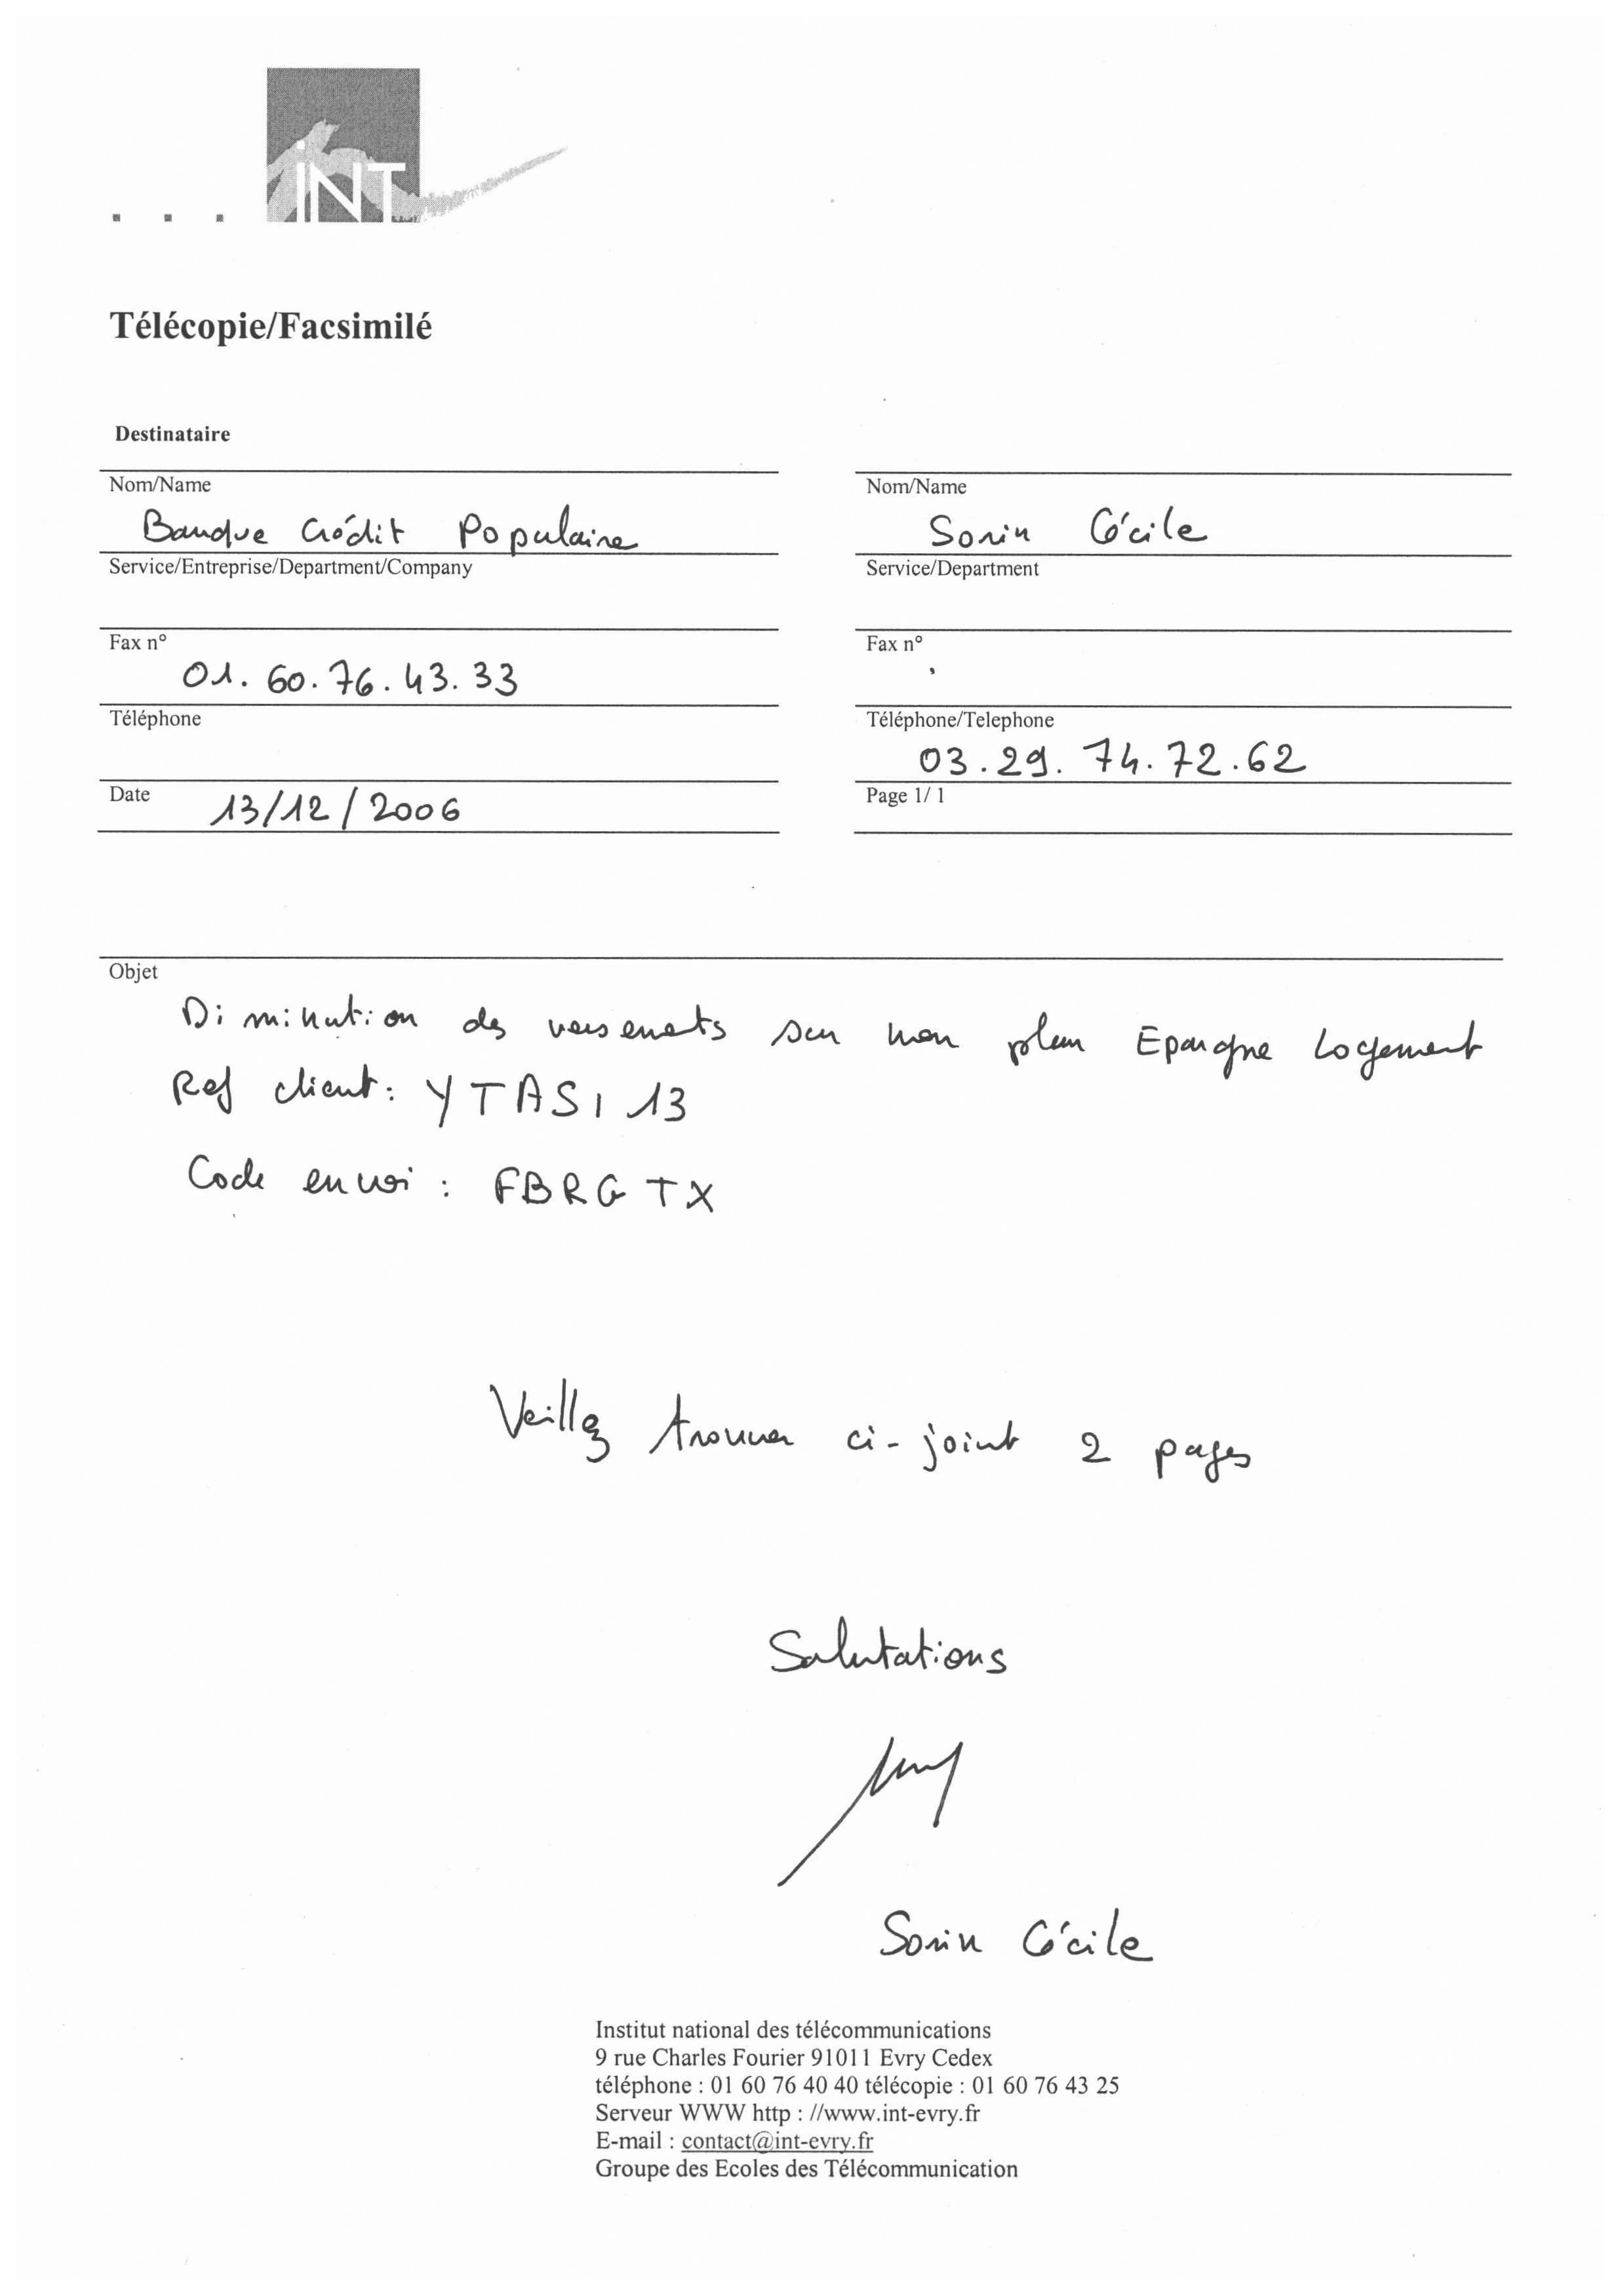 iNT
Télécopie/Facsimilé
Destinataire
Nom/Name
Banque Crédit Populaire
Service/Entreprise/Department/Company
Fax n°
01.60.76.43.33
Téléphone
Date 13/12/2006
Nom/Name
Sorin Cécile
Service/Department
Fax n°
Téléphone/Telephone
03.29.74.72.62
Page 1/ 1
Objet
Diminution des versements sur mon plan Epargne Logement
Ref client: YTASI 13
Code envoi : FBRGTX
Veillez trouver ci-joint 2 pages
Salutations
Sorin Cécile
Institut national des télécommunications
9 rue Charles Fourier 91011 Evry Cedex
téléphone : 01 60 76 40 40 télécopie : 01 60 76 43 25
Serveur WWW http : //www.int-evry.fr
E-mail : contact@int-evry.fr
Groupe des Ecoles des Télécommunication